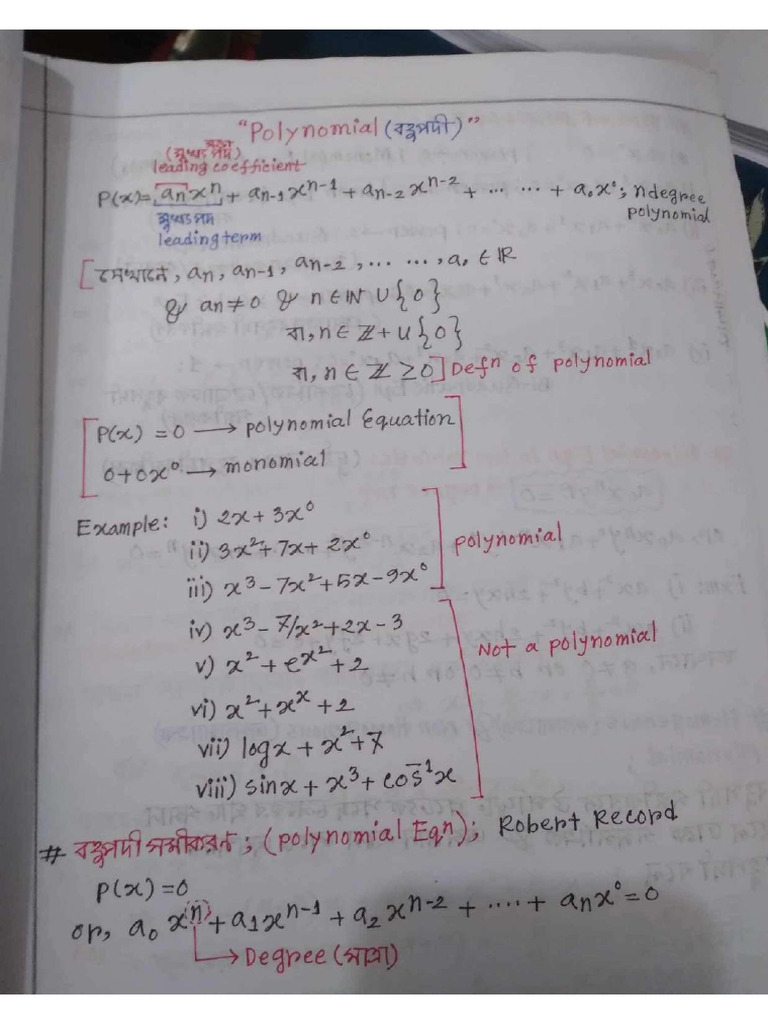 "Polynomial (বহুপদী)"
(মুখ্য সহগ)
leading coefficient
P(x) = aₙxⁿ + aₙ₋₁xⁿ⁻¹ + aₙ₋₂xⁿ⁻² + ... ... + a₀x⁰ ; n degree
polynomial
মুখ্যপদ
leading term
[যেখানে, aₙ, aₙ₋₁, aₙ₋₂, ... ..., a₀ ∈ ℝ
& aₙ ≠ 0 & n ∈ ℕ ∪ {0}
বা, n ∈ ℤ+ ∪ {0}
বা, n ∈ ℤ ≥ 0] Defⁿ of polynomial
[P(x) = 0 → polynomial Equation
0+0x⁰ → monomial]
Example: i) 2x + 3x⁰
ii) 3x² + 7x + 2x⁰
iii) x³ - 7x² + 5x - 9x⁰
polynomial
iv) x³ - 7/x² + 2x - 3
v) x² + eˣ² + 2
vi) x² + xˣ + 2
vii) logx + x² + 7
viii) sinx + x³ + cos⁻¹x
Not a polynomial
# বহুপদী সমীকরণ ; (polynomial Eqⁿ); Robert Record
P(x) = 0
or, a₀x⁽ⁿ⁾ + a₁xⁿ⁻¹ + a₂xⁿ⁻² + .... + aₙx⁰ = 0
→ Degree (মাত্রা)